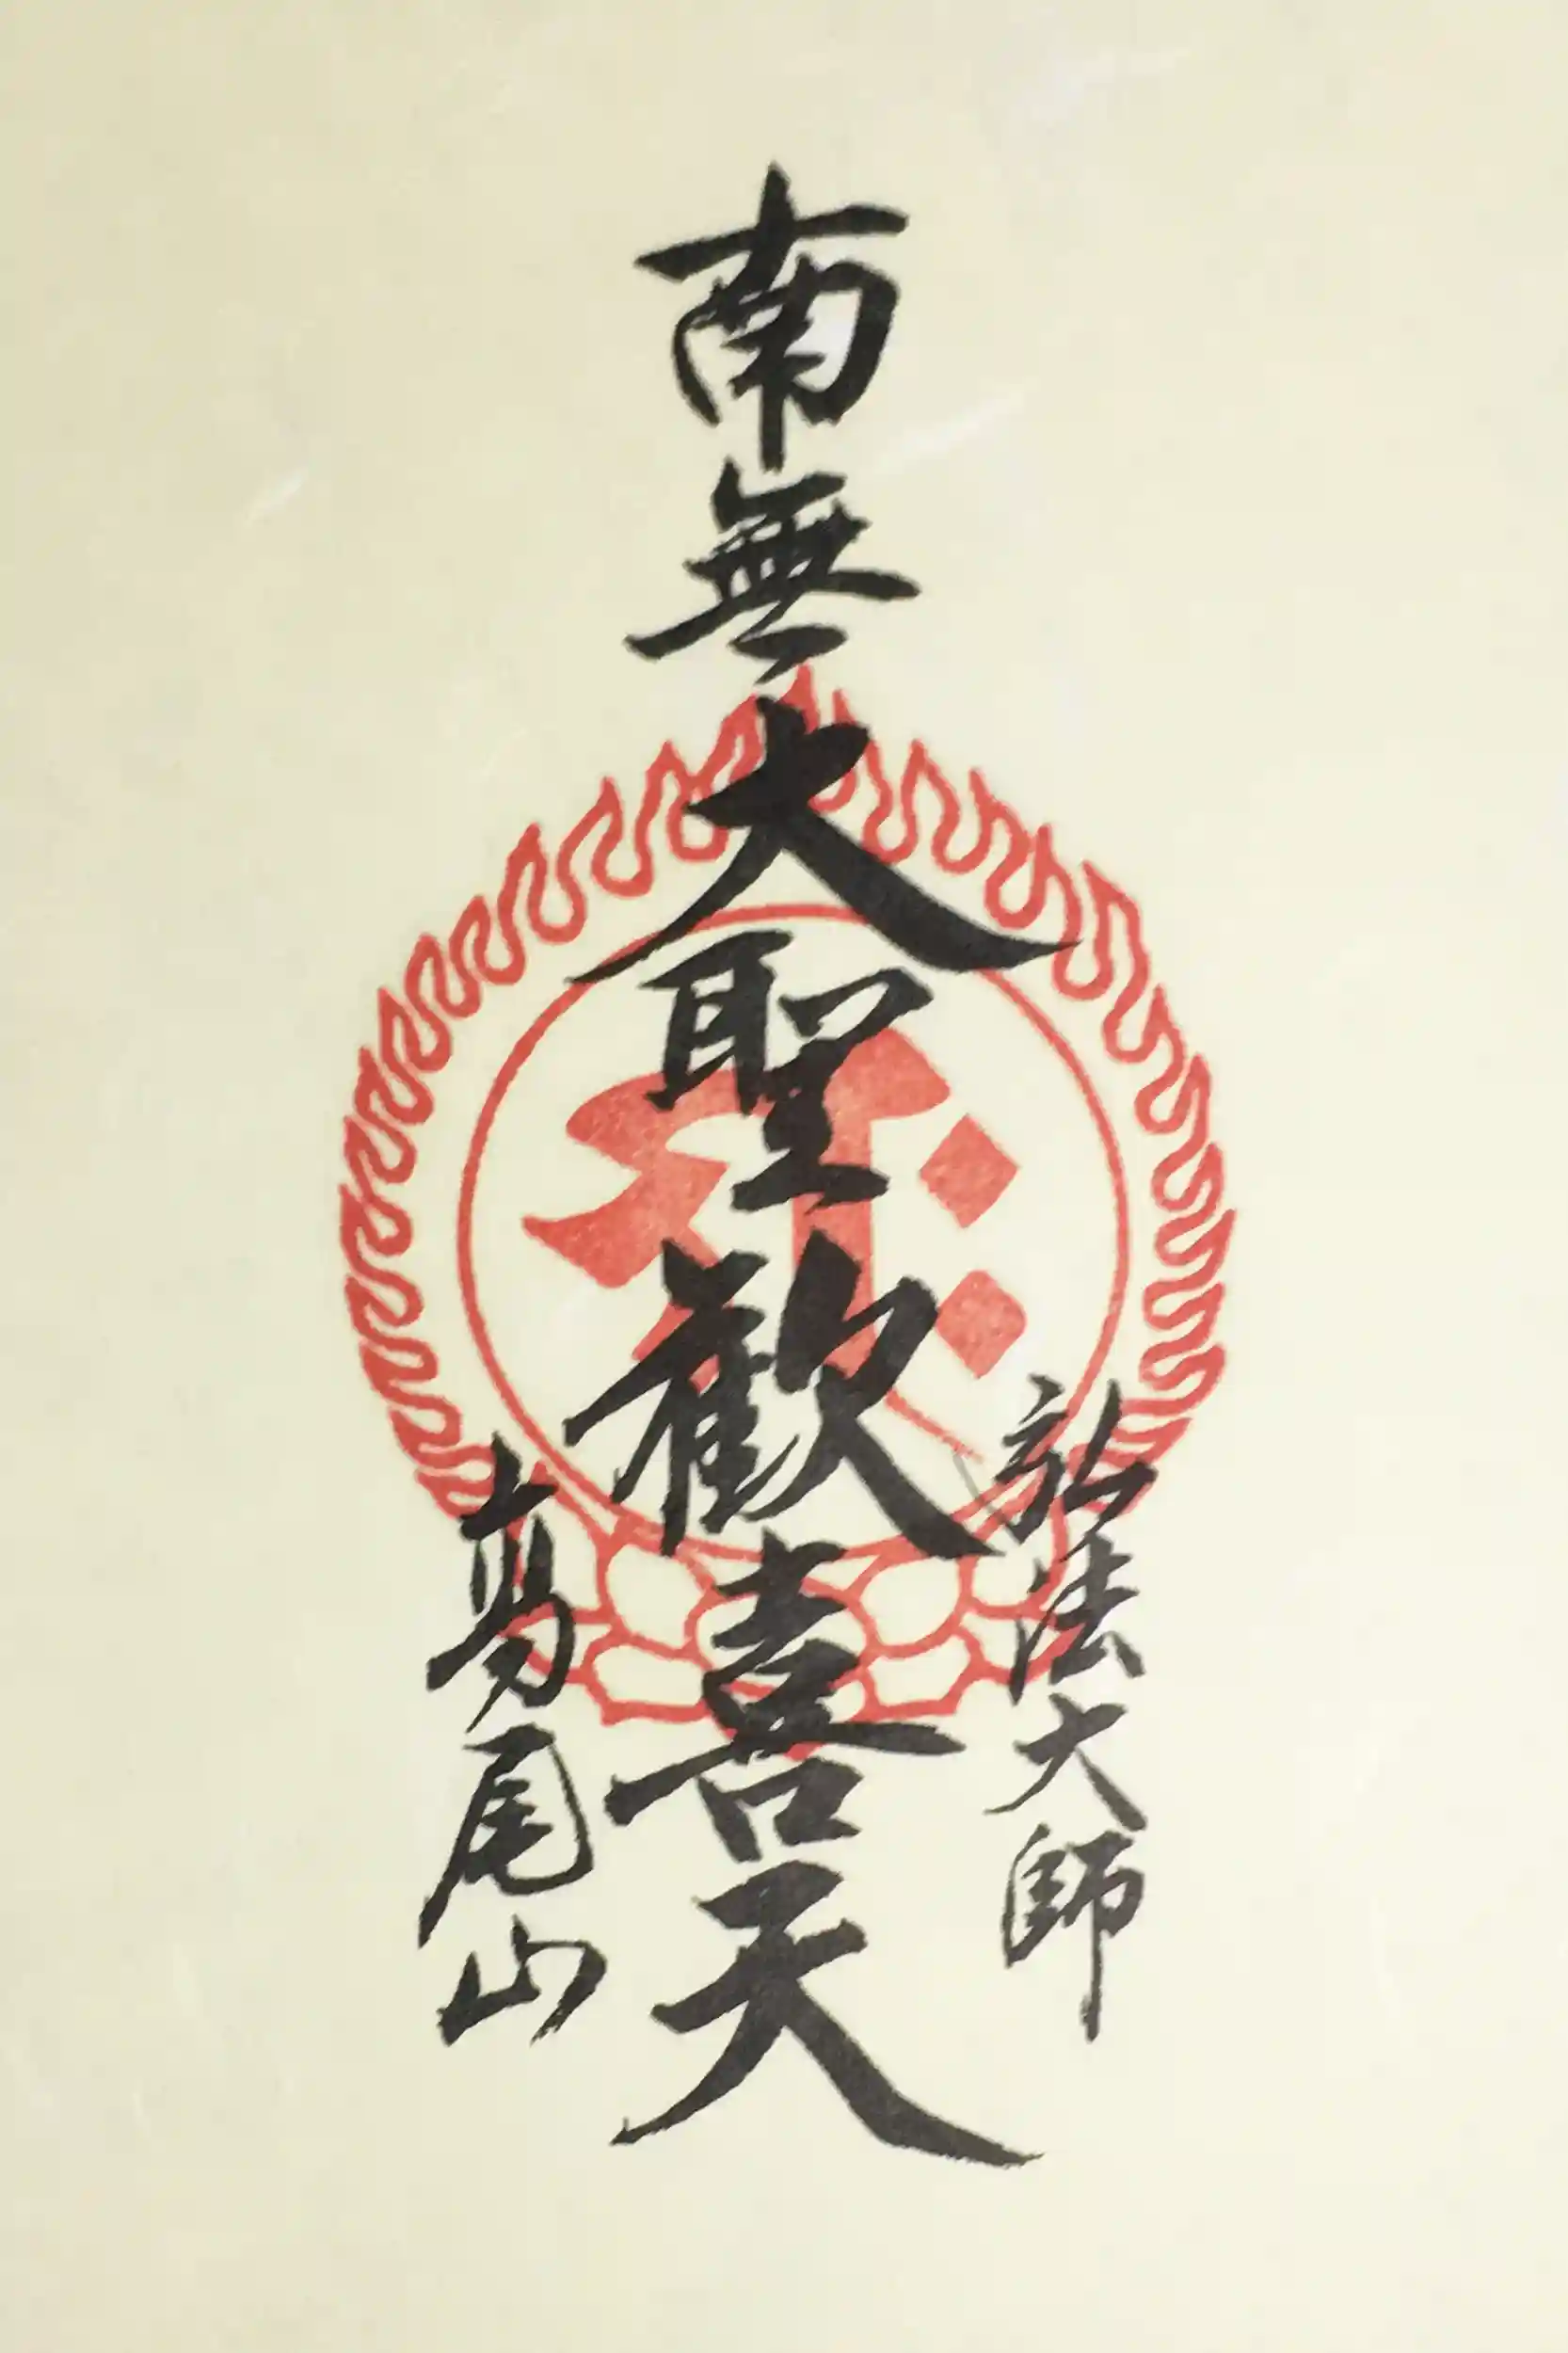 弘法大師
南無大聖歓喜天
尾山